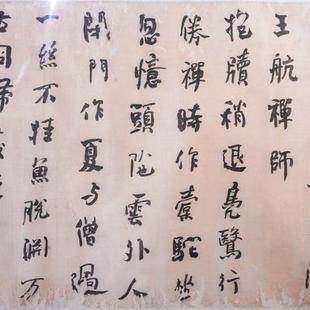 王航禪師
抱牘稍退鳧鶩行
倦禪時作橐駞坐
忽憶頭陁雲外人
閉門作夏与僧過
一絲不挂魚脱淵万
古同歸